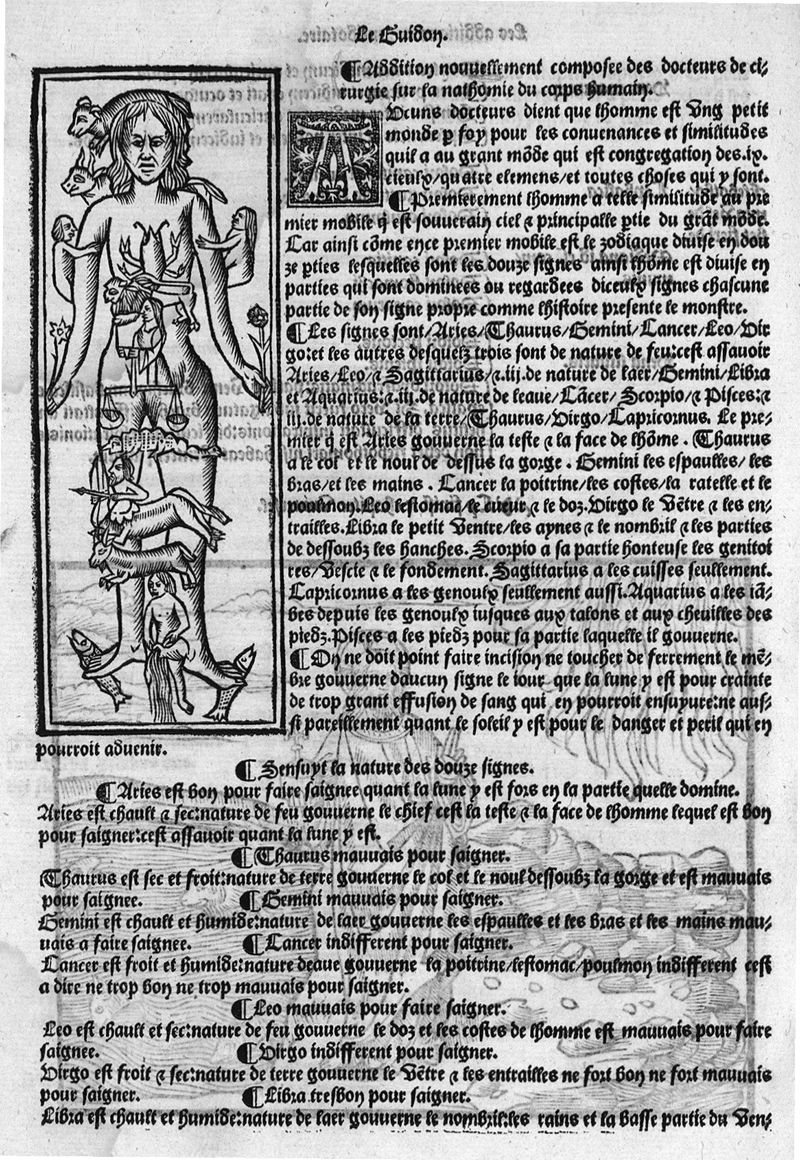 Le Guidon.
¶ Addition nouuellement composee des docteurs de ci/
rurgie sur la nathomie du corps humain.
AUcuns docteurs dient que lhomme est vng petit
monde p soy pour les conuenances et similitudes
quil a au grant mõde qui est congregation des.ix.
cieulx/quatre elemens/et toutes choses qui y sont.
¶ Premierement lhomme a telle similitude au pre
mier mobile q̃ est souuerain ciel ⁊ principalle ptie du grãt mõde.
Car ainsi cõme ence premier mobile est le zodiaque diuise en dou
ze pties lesquelles sont les douze signes ainsi lhõme est diuise en
parties qui sont dominees ou regardees diceulx signes chascune
partie de son signe propre comme lhistoire presente le monstre.
¶ Les signes sont/Aries/Thaurus/Gemini/Cancer/Leo/Vir
go:et les autres desquelz trois sont de nature de feu:cest assauoir
Aries/Leo/⁊ Sagittarius/⁊.iij.de nature de laer/Gemini/Libra
et Aquarius:⁊.iij.de nature de leaue/Cãcer/Scorpio/⁊ Pisces:⁊
iij.de nature de la terre/Thaurus/Virgo/Capricornus. Le pre-
mier q̃ est Aries gouuerne la teste ⁊ la face de lhõme. Thaurus
a le col et le nouf de dessus la gorge. Gemini les espaulles/les
bras/et les mains. Cancer la poitrine/les costes/la ratelle et le
poulmon.Leo lestomac/le cueur/⁊ le doz.Virgo le vẽtre ⁊ les en-
trailles.Libra le petit ventre/les aynes ⁊ le nombril ⁊ les parties
de dessoubz les hanches. Scorpio a sa partie honteuse les genitoi
res/vescie ⁊ le fondement. Sagittarius a les cuisses seullement.
Capricornus a les genoulx seullement aussi. Aquarius a les iã-
bes depuis les genoulx iusques aux talons et aux cheuilles des
piedz. Pisces a les piedz pour sa partie laquelle il gouuerne.
¶ On ne doit point faire incision ne toucher de ferrement le mẽ-
bre gouuerne daucun signe le iour que la lune y est pour crainte
de trop grant effusion de sang qui en pourroit ensuyure:ne aus-
si pareillement quant le soleil y est pour le danger et peril qui en
pourroit aduenir.
¶ Sensuyt la nature des douze signes.
¶ Aries est bon pour faire saignee quant la lune y est fors en la partie quelle domine.
Aries est chault ⁊ sec:nature de feu gouuerne le chief cest la teste ⁊ la face de lhomme lequel est bon
pour saigner:cest assauoir quant la lune y est.
¶ Thaurus mauuais pour saigner.
Thaurus est sec et froit:nature de terre gouuerne le col et le nouf dessoubz la gorge et est mauuais
pour saigner. ¶ Gemini mauuais pour saigner.
Gemini est chault et humide:nature de laer gouuerne les espaulles et les bras et les mains mau-
uais a faire saignee. ¶ Cancer indifferent pour saigner.
Cancer est froit et humide:nature deaue gouuerne la poitrine/lestomac/poulmon indifferent cest
a dire ne trop bon ne trop mauuais pour saigner.
¶ Leo mauuais pour faire saigner.
Leo est chault et sec:nature de feu gouuerne le doz et les costes de lhomme est mauuais pour faire
saignee. ¶ Virgo indifferent pour saigner.
Virgo est froit ⁊ sec:nature de terre gouuerne le vẽtre ⁊ les entrailles ne fort bon ne fort mauuais
pour saigner. ¶ Libra tresbon pour saigner.
Libra est chault et humide:nature de laer gouuerne le nombril:les rains et la basse partie du ven-